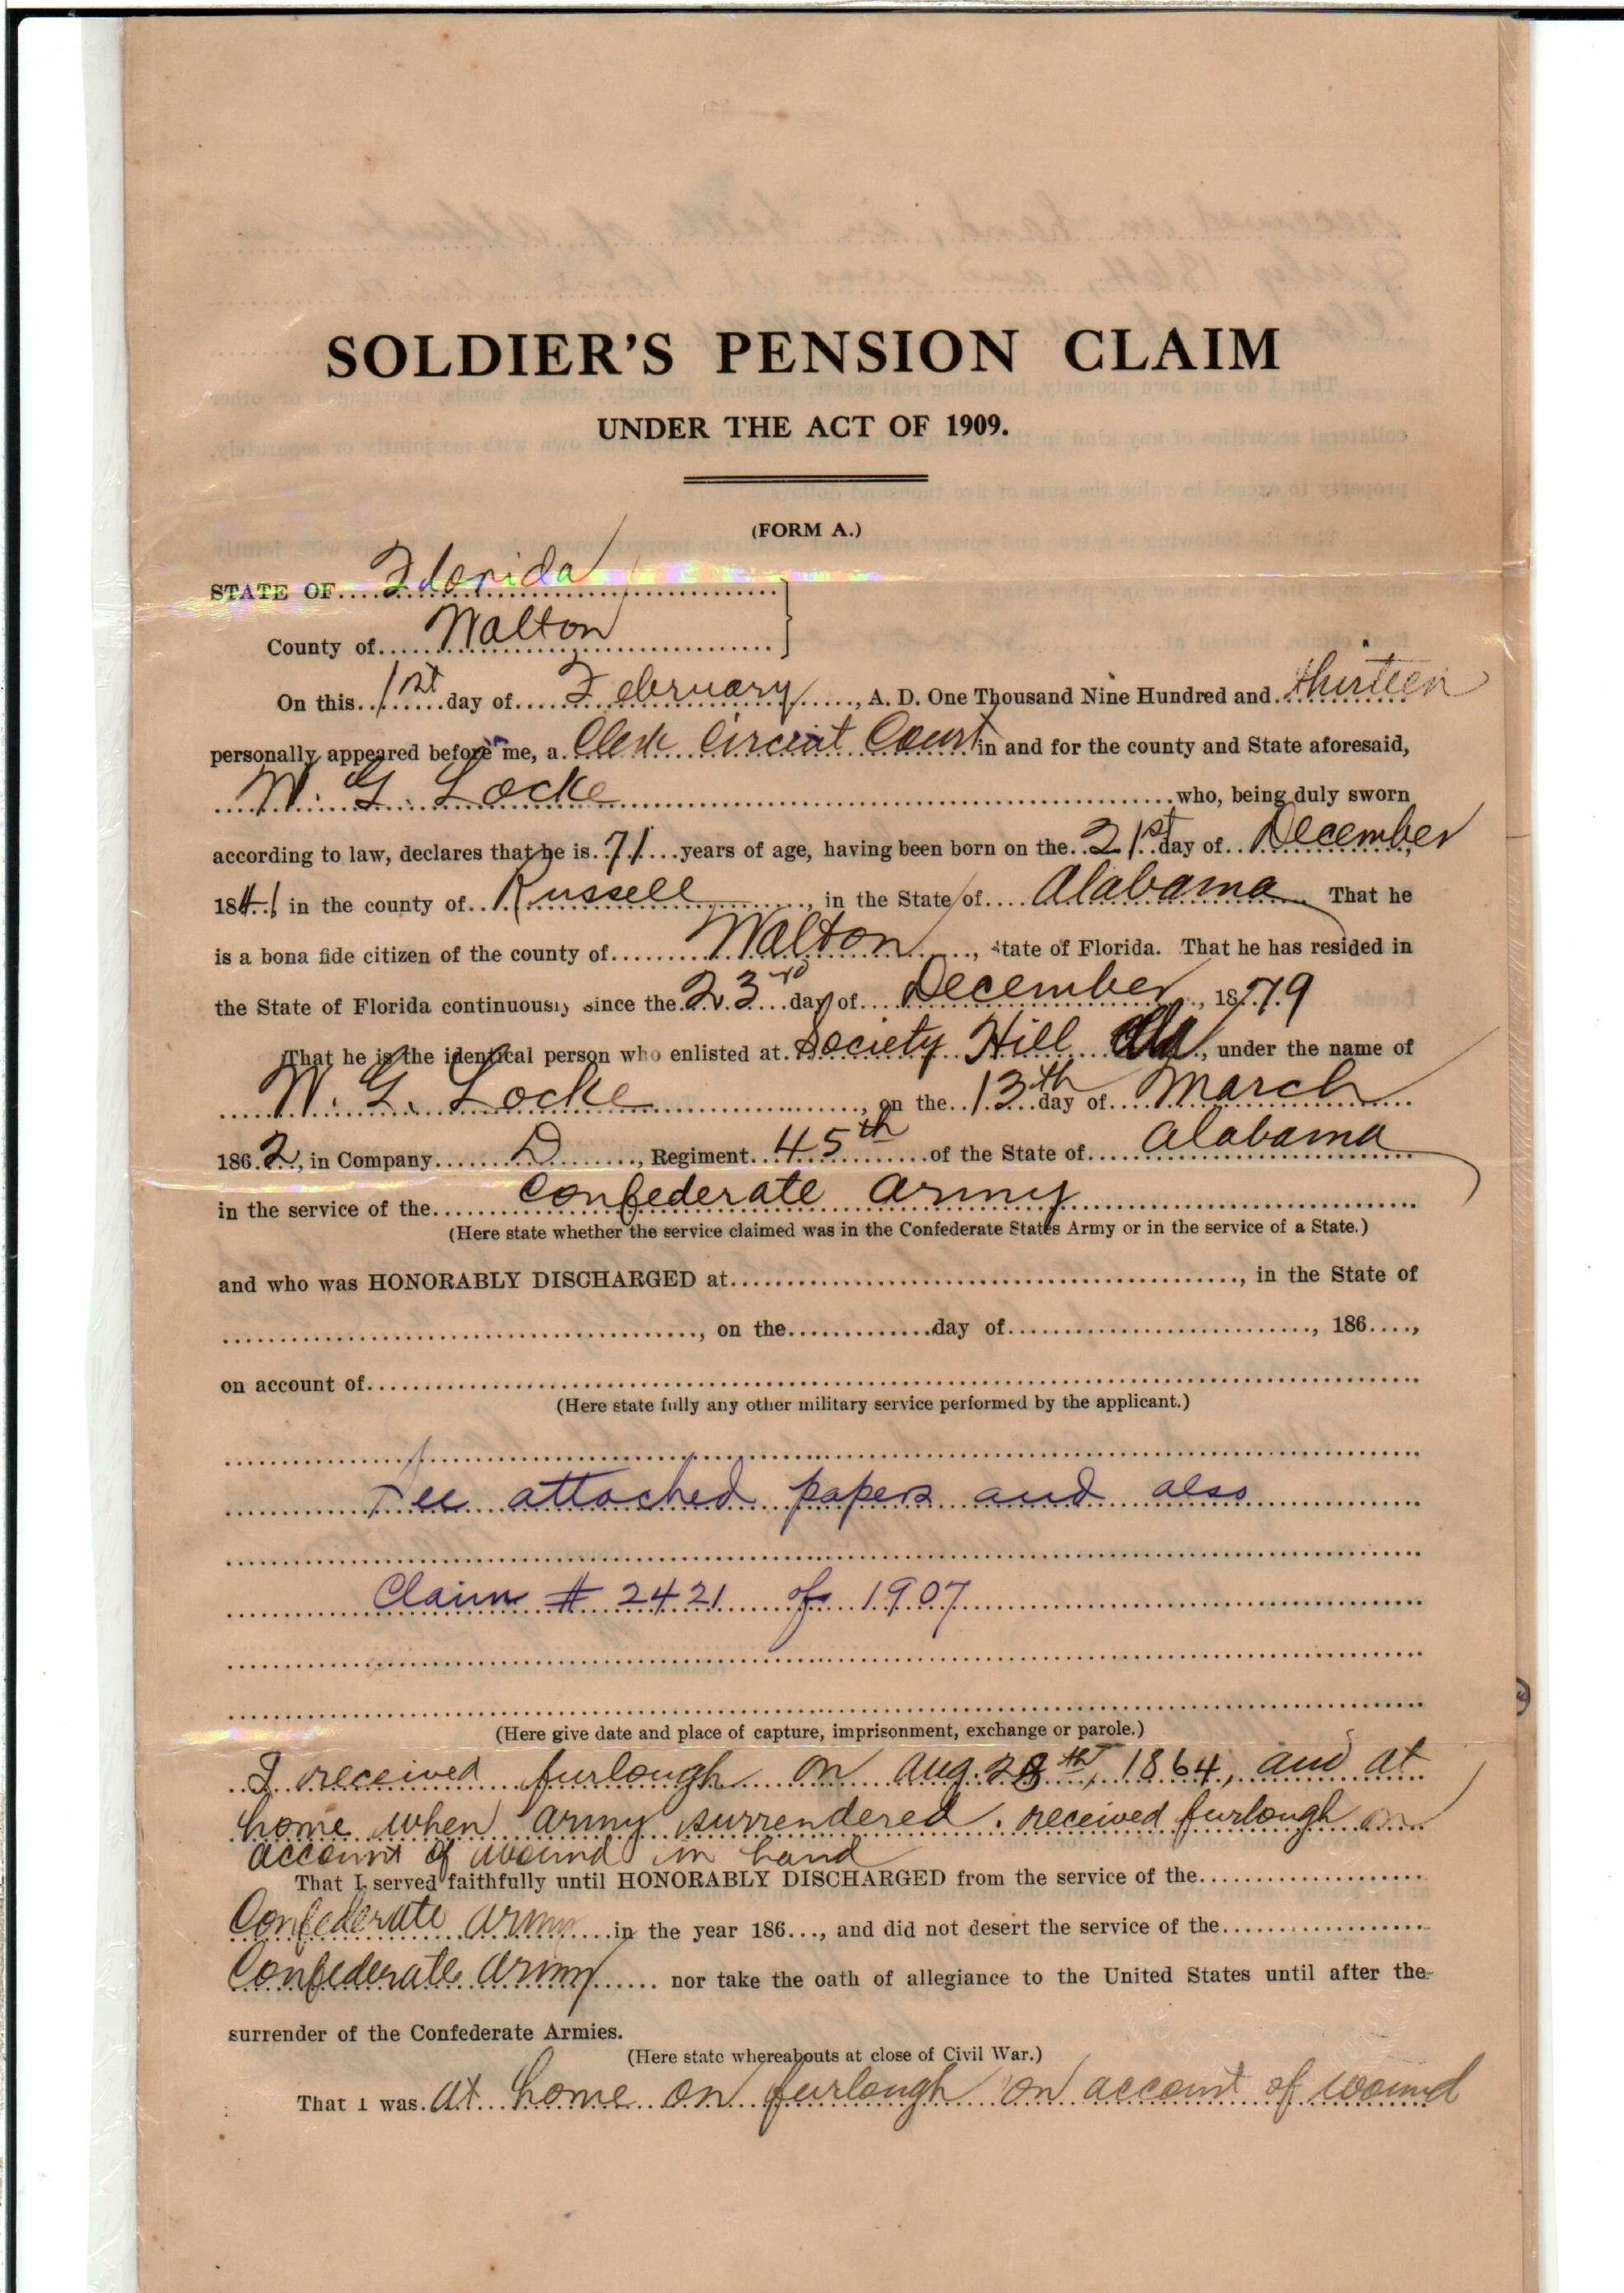 SOLDIER'S PENSION CLAIM
UNDER THE ACT OF 1909.
(FORM A.)
STATE OF Florida
County of Walton
On this 1st day of February, A. D. One Thousand Nine Hundred and thirteen
personally appeared before me, a Clerk Circuit Court in and for the county and State aforesaid,
W. G. Locke who, being duly sworn
according to law, declares that he is 71 years of age, having been born on the 21st day of December
1841 in the county of Russell, in the State of Alabama That he
is a bona fide citizen of the county of Walton, State of Florida. That he has resided in
the State of Florida continuously since the 23rd day of December, 1879
That he is the identical person who enlisted at Society Hill Ala, under the name of
W. G. Locke, on the 13th day of March
1862, in Company D, Regiment 45th of the State of Alabama
in the service of the Confederate Army
(Here state whether the service claimed was in the Confederate States Army or in the service of a State.)
and who was HONORABLY DISCHARGED at, in the State of
, on the day of, 186,
on account of
(Here state fully any other military service performed by the applicant.)
See attached papers and also
Claim # 2421 of 1907
(Here give date and place of capture, imprisonment, exchange or parole.)
I received furlough on Aug. 28th, 1864, and at
home when army surrendered. received furlough on
account of wound in hand
That I served faithfully until HONORABLY DISCHARGED from the service of the
Confederate Army in the year 186, and did not desert the service of the
Confederate Army nor take the oath of allegiance to the United States until after the
surrender of the Confederate Armies.
(Here state whereabouts at close of Civil War.)
That I was at home on furlough on account of wound